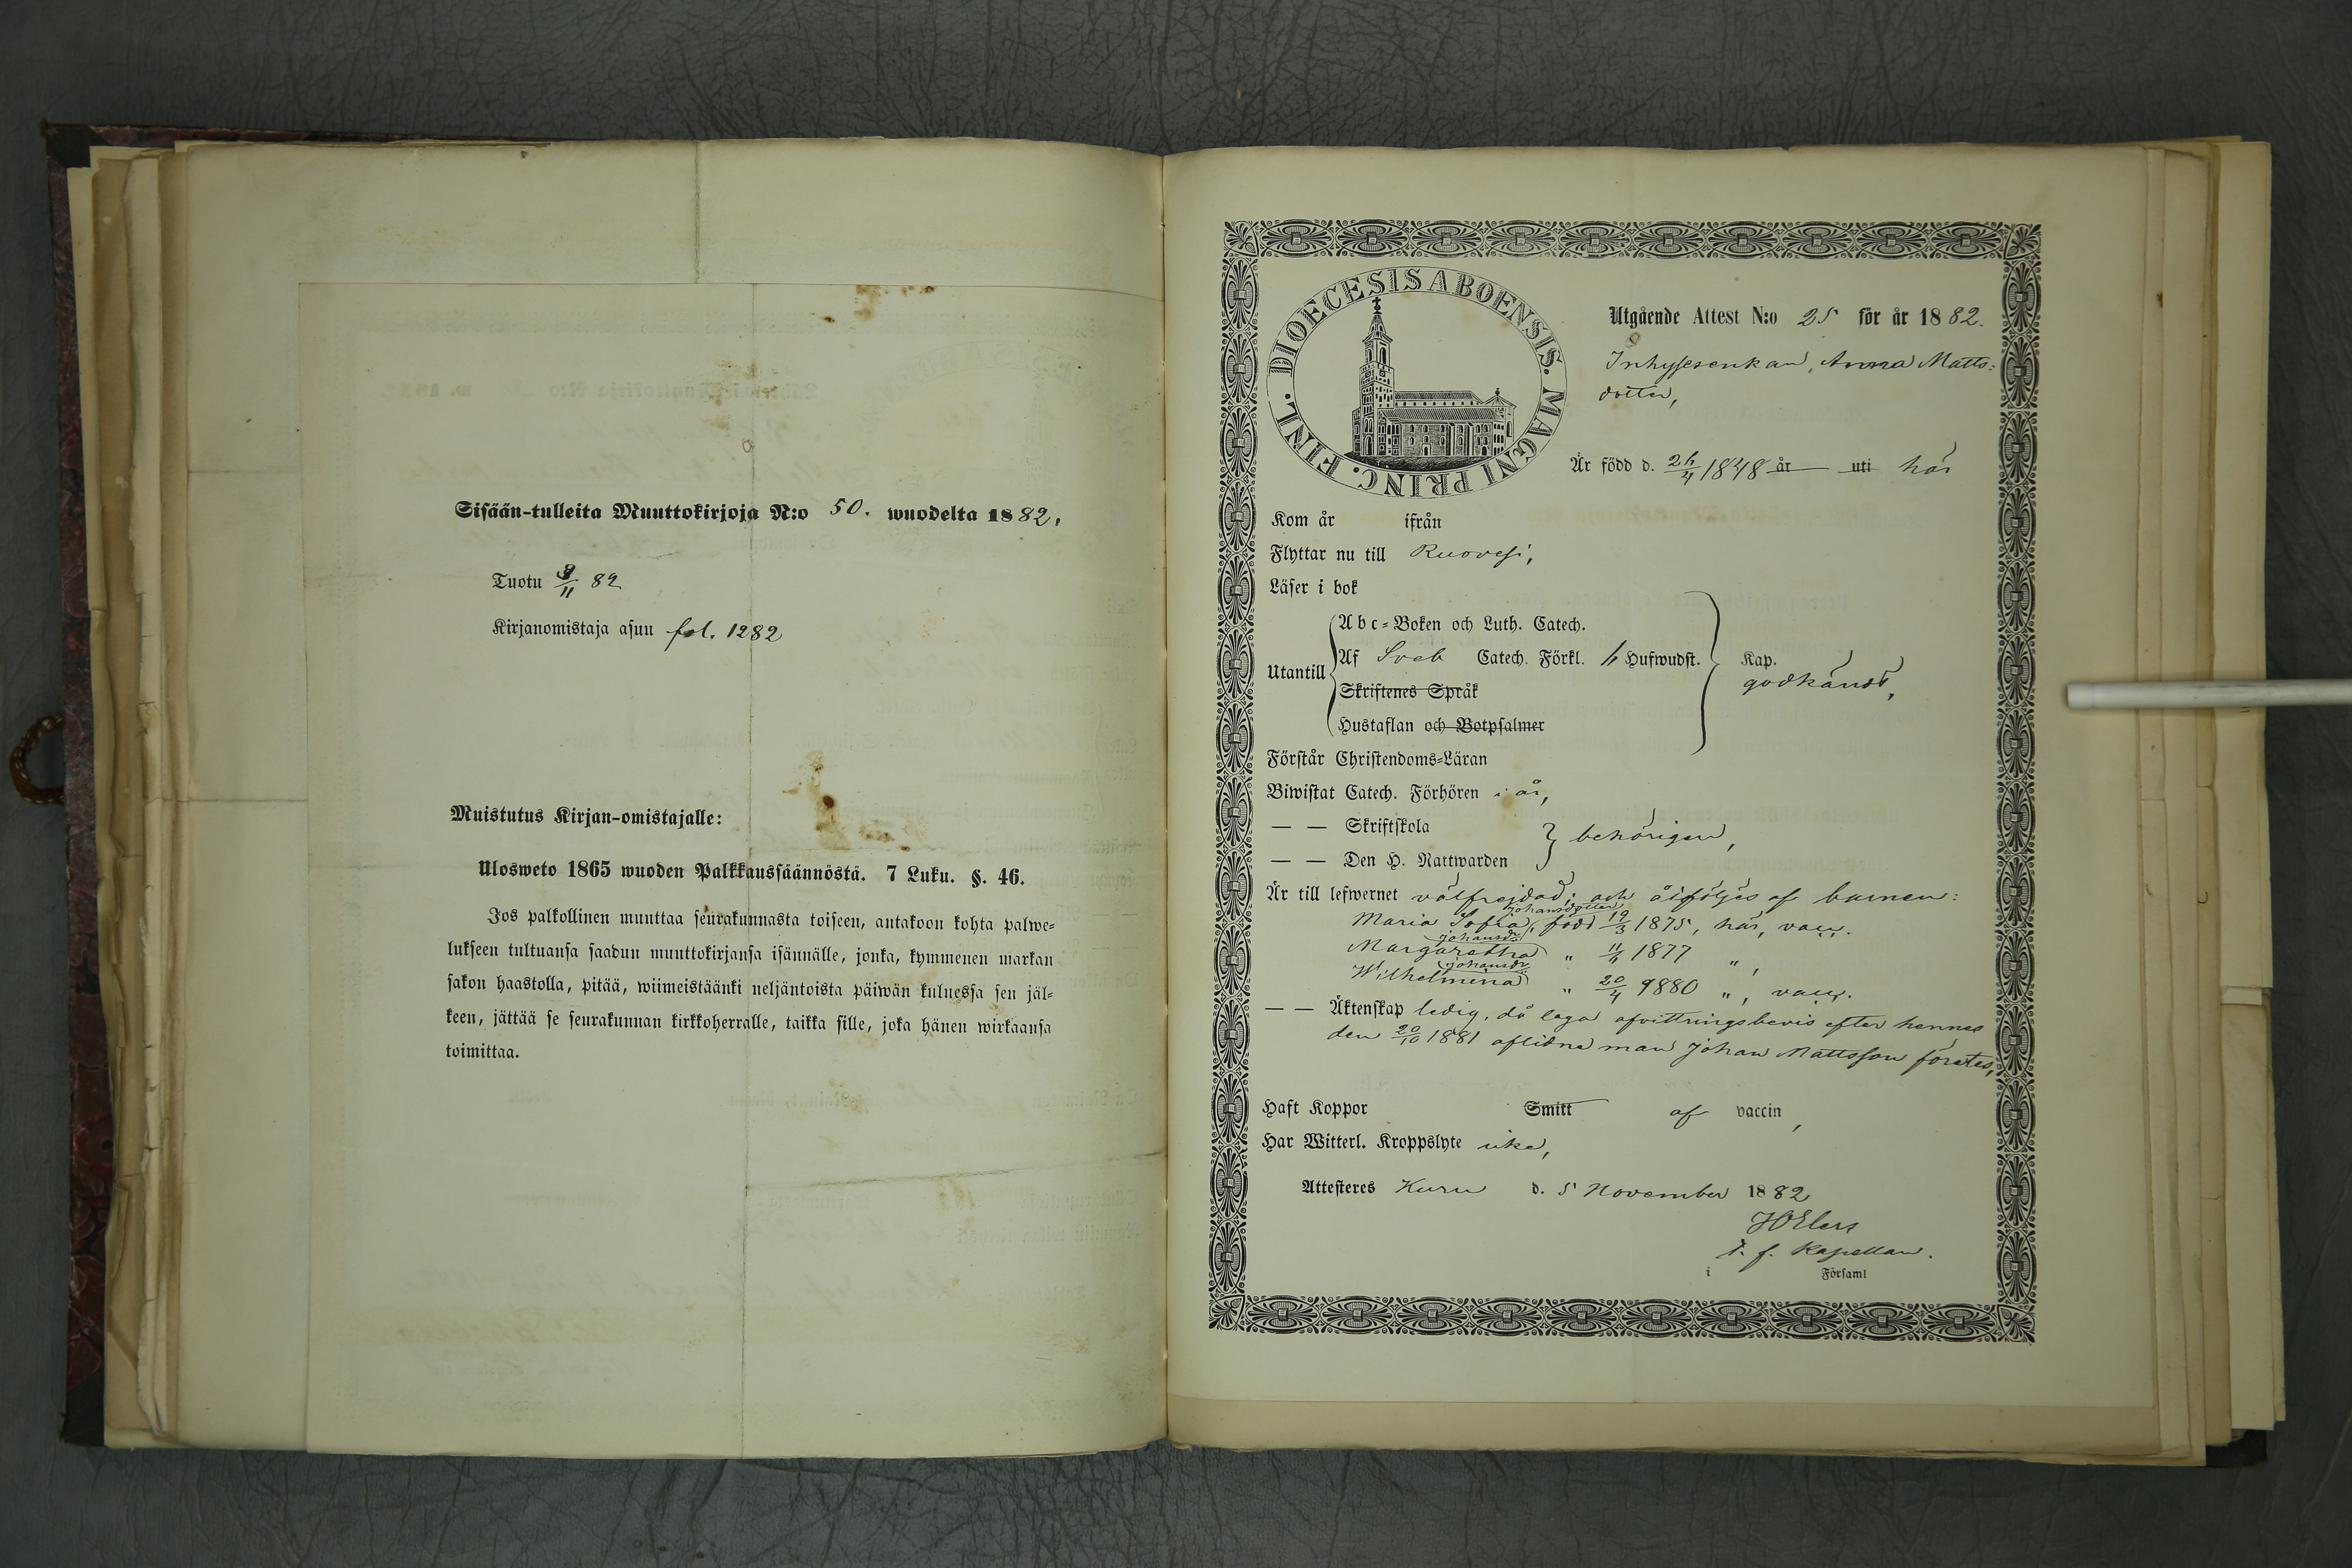 Sisään-tulleita Muuttokirjoja N:o 50. wuodelta 1882.
Tuotu 9/11 82
Kirjanomistaja asuu fol. 1282
Muistutus Kirjan-omistajalle:
Ulosweto 1865 wuoden Palkkaussäännöstä. 7 Luku. §. 46.
Jos palkollinen muuttaa seurakunnasta toiseen, antakoon kohta palwe-
lukseen tultuansa saadun muuttokirjansa isännälle, jonka, kymmenen markan
sakon haastolla, pitää, wiimeistäänki neljäntoista päiwän kuluessa sen jäl-
keen, jättää se seurakunnan kirkkoherralle, taikka sille, joka hänen wirkaansa
toimittaa.
DIOECESIS ABOENSIS. MAGNI PRINC. FINL.
Utgående Attest N:o 25 för år 1882.
Inhysesenkan, Anna Matts-
dotter,
Är född d. 26/4 1848 år uti här
Kom år ifrån
Flyttar nu till Ruovesi,
Läser i bok
Utantill
Abc-Boken och Luth. Catech.
Af Sveb Catech. Förkl. 6 Hufwudst.
Skriftenes Språk
Hustaflan och Botpsalmer
Kap.
godkändt,
Förstår Christendoms-Läran
Biwistat Catech. Förhören i år,
— — Skriftskola
— — Den H. Nattwarden
behörigen,
Är till lefwernet välfrejdad; och åtföljes af barnen:
Maria Sofia Johansdotter, född 19/3 1875, här, vacc.
Margaretha Johansdr " 11/11 1877 ",
Wilhelmina Johansdr " 20/4 9880 ", vacc.
— — Äktenskap ledig, då laga afvittringsbevis efter hennes
den 20/10 1881 aflidne man Johan Mattsson företes,
Haft Koppor Smitt af vaccin,
Har Witterl. Kroppslyte icke,
Attesteres Kuru d. 5 November 1882
t. f. Kapellan.
i Församl